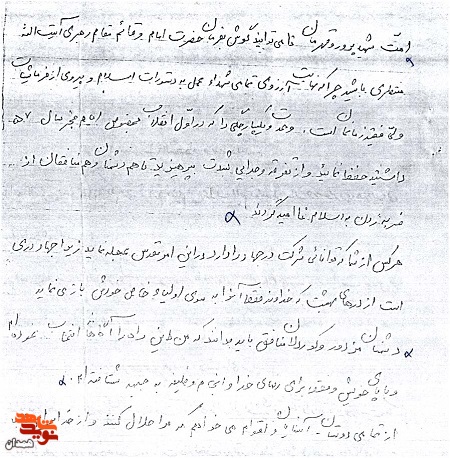 امت شهید پرور و قهرمان قامی توانید گوش بفرمان حضرت امام و قائم مقام رهبری آیت الله
منتظری باشید چرا که نهایت آرزوی تمامی شهداء عمل به دستورات اسلام و پیروی از فرمایشات
ولی فقیه زمان است . وحدت و یکپارچگی را که در اول انقلاب بخصوص ایام محرم سال ۵۷
داشتید حفظ نمائید و از تفرقه و جدایی شدت بپرهیزید تا هم دشمنان و هم منافقان از
ضربه زدن به اسلام نا امید گردند
هرکس از شما که توانائی شرکت در جهاد را دارد در این امر مقدس عجله نماید زیرا جهاد دری
است از درهای بهشت که خداوند فقط آنرا به سوی اولیاء خاص خودش باز می نماید
دشمنان مزدور و کوردلان منافق باید بدانند که من این راه را آگاهانه انتخاب نموده ام
و با پای خویش و فقط برای رضای خدا و انجام وظیفه به جبهه شتافته ام .
از تمامی دوستان آشنایان و اقوام می خواهم که مرا حلال کنند و از خدا برایم
نوید
همدان